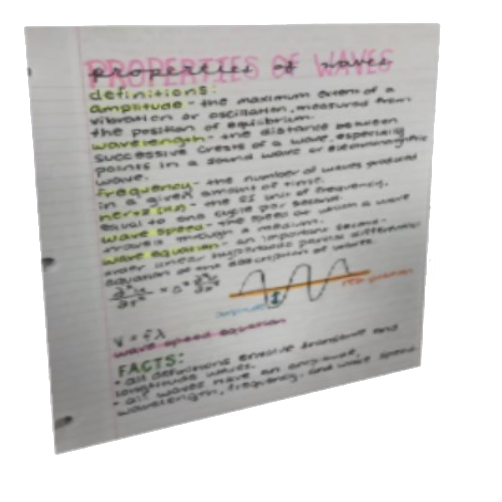 PROPERTIES OF WAVES
properties of waves
definitions:
amplitude - the maximum extent of a
vibration or oscillation, measured from
the position of equilibrium.
wavelength - the distance between
successive crests of a wave, especially
points in a sound wave or electromagnetic
wave.
frequency - the number of waves produced
in a given amount of time.
hertz (Hz) - the SI unit of frequency,
equal to one cycle per second.
wave speed - the speed at which a wave
travels through a medium.
wave equation - an important second-
order linear hyperbolic partial differential
equation of the description of waves.
amplitude
rest position
v = fλ
wave speed equation
FACTS:
• all definitions involve transverse and
longitudinal waves.
• all waves have an amplitude,
wavelength, frequency, and wave speed